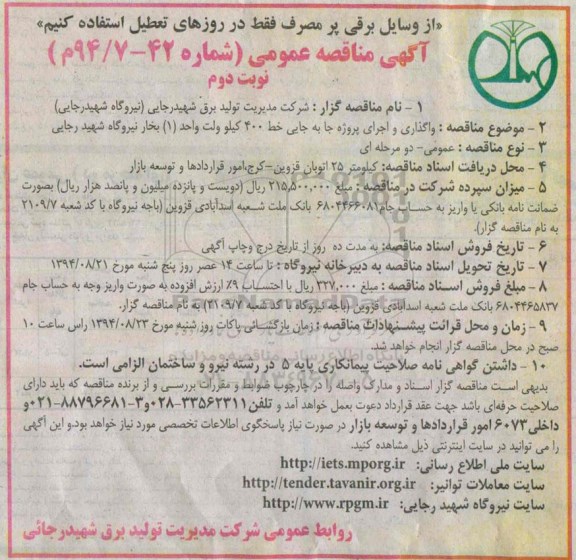 «از وسایل برقی پر مصرف فقط در روزهای تعطیل استفاده کنیم»
آگهی مناقصه عمومی (شماره ۴۲-۹۴/۷م)
نوبت دوم
۱ - نام مناقصه گزار : شرکت مدیریت تولید برق شهیدرجایی (نیروگاه شهیدرجایی)
۲ - موضوع مناقصه : واگذاری و اجرای پروژه جا به جایی خط ۴۰۰ کیلو ولت واحد (۱) بخار نیروگاه شهید رجایی
۳ - نوع مناقصه : عمومی- دو مرحله ای
۴ - محل دریافت اسناد مناقصه: کیلومتر ۲۵ اتوبان قزوین-کرج،امور قراردادها و توسعه بازار
۵ - میزان سپرده شرکت در مناقصه : مبلغ ۲۱۵,۵۰۰,۰۰۰ ریال (دویست و پانزده میلیون و پانصد هزار ریال) بصورت
ضمانت نامه بانکی یا واریز به حساب جام۶۸۰۴۴۶۶۰۸۱ بانک ملت شعبه اسدآبادی قزوین (باجه نیروگاه با کد شعبه ۲۱۰۹/۷
به نام مناقصه گزار).
۶ - تاریخ فروش اسناد مناقصه: به مدت ده روز از تاریخ درج وچاپ آگهی
۷ - تاریخ تحویل اسناد مناقصه به دبیرخانه نیروگاه : تا ساعت ۱۴ عصر روز پنج شنبه مورخ ۱۳۹۴/۰۸/۲۱
۸ - مبلغ فروش اسناد مناقصه : مبلغ ۳۲۷,۰۰۰ ریال با احتساب ۹٪ ارزش افزوده به صورت واریز وجه به حساب جام
۶۸۰۴۴۶۵۸۳۷ بانک ملت شعبه اسدآبادی قزوین (باجه نیروگاه با کد شعبه ۲۱۰۹/۷) به نام مناقصه گزار.
۹ - زمان و محل قرائت پیشنهادات مناقصه : زمان بازگشائی پاکات روز شنبه مورخ ۱۳۹۴/۰۸/۲۳ راس ساعت ۱۰
صبح در محل مناقصه گزار انجام خواهد شد.
۱۰ - داشتن گواهی نامه صلاحیت پیمانکاری پایه ۵ در رشته نیرو و ساختمان الزامی است.
بدیهی است مناقصه گزار اسناد و مدارک واصله را در چارچوب ضوابط و مقررات بررسی و از برنده مناقصه که باید دارای
صلاحیت حرفه‌ای باشد جهت عقد قرارداد دعوت بعمل خواهد آمد و تلفن۳۳۵۶۲۳۱۱-۰۲۸و۳-۸۸۷۹۶۶۸۱-۰۲۱و
داخلی۶۰۷۳ امور قراردادها و توسعه بازار در صورت نیاز پاسخگوی اطلاعات تخصصی مورد نیاز خواهد بود.و این آگهی
را می توانید در سایت اینترنتی ذیل مشاهده کنید.
سایت ملی اطلاع رسانی: http://iets.mporg.ir
سایت معاملات توانیر: http://tender.tavanir.org.ir
سایت نیروگاه شهید رجایی: http://www.rpgm.ir
روابط عمومی شرکت مدیریت تولید برق شهیدرجائی